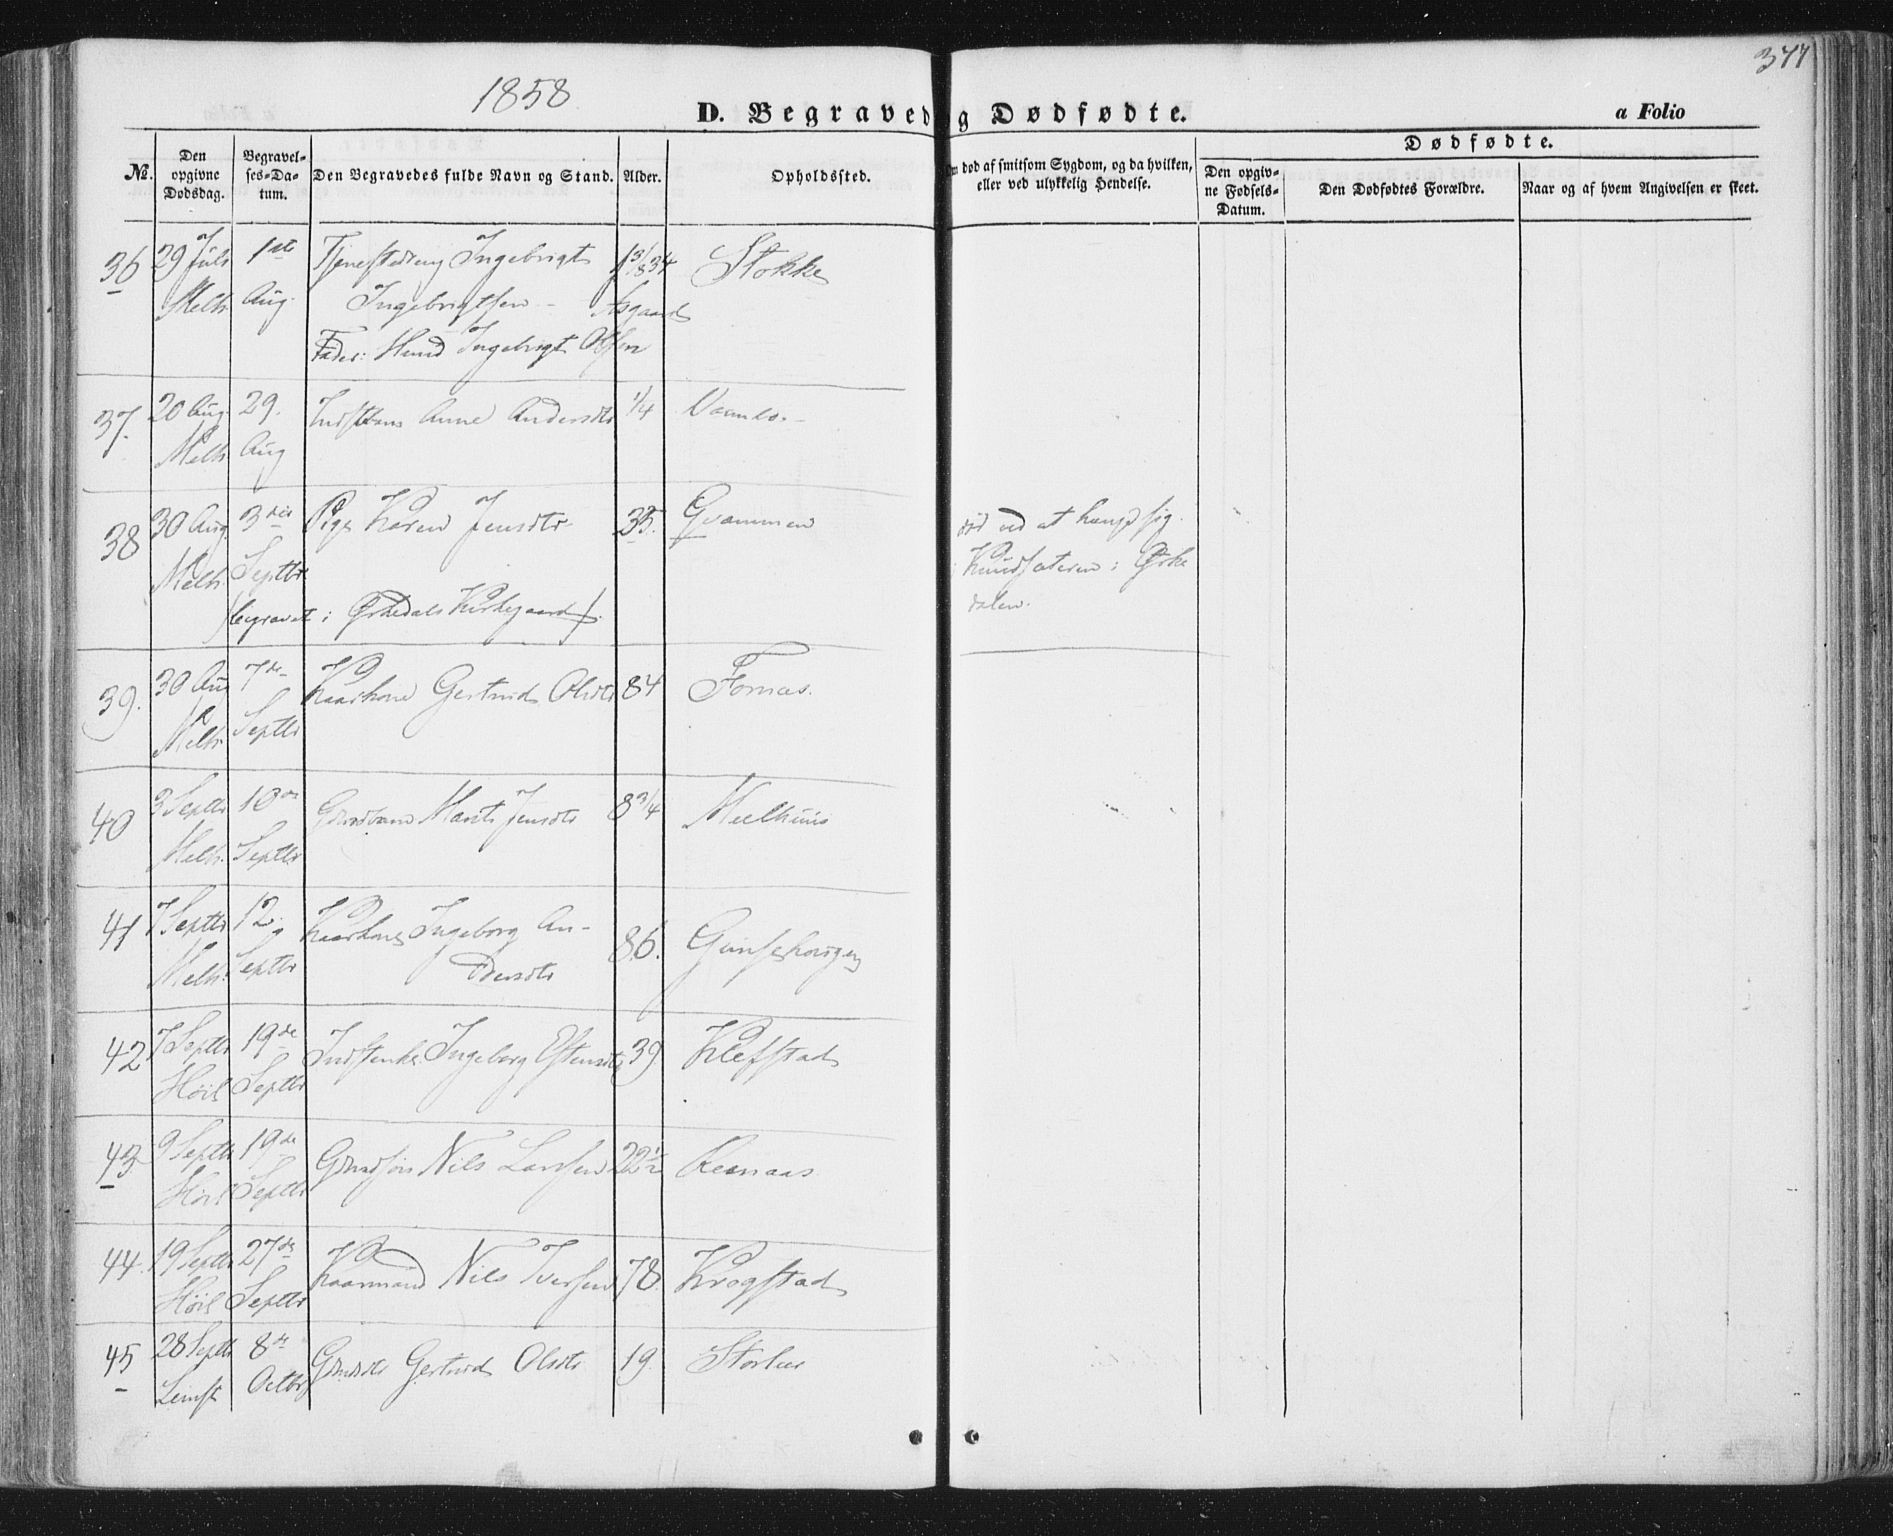 1858
377
D. Begravede og Dødfødte.
a Folio
№.
Den opgivne Dødsdag.
Begravelses-Datum.
Den Begravedes fulde Navn og Stand.
Alder.
Opholdssted.
død af smitsom Sygdom, og da hvilken, eller ved ulykkelig Hendelse.
Dødfødte.
Den opgivne Fødsels-Datum.
Den Dødfødtes Forældre.
Naar og af hvem Angivelsen er skeet.
36 29 Juli 1ste Ingebrigt Stokke
Melh. Aug. Ingebrigtsen -
Fader: Ingebrigt Olsen
37. 20 Aug. 29. Anne Andersdtr 1/4
Melh. Aug
38 30 Aug. 3die Pige Karen Jensdtr 35. Gvammen
død ved at hænge sig
Melh. Septbr
dalen.
(begravet i Ørkedals Kirkegaard).
39. 30 Aug 7de Kaarkone Gertrud Olsdtr 84 Fornæs.
Melh. Septbr
40 3 Septbr 10de Marit Jensdtr 8 3/4 Meelhuus
Melh. Septbr
41 7 Septbr 12. Kaarkone Ingeborg An-
dersdtr 86.
Melh. Septbr
42 7 Septbr 19de Ingeborg Estensdtr 39 Klefstad
Høil. Septbr
43 9 Septbr 19de Gmdsøn Nils Larsen 22 1/2
Høil Septbr
44. 19 Septbr 27de Kaarmand Nils Iversen 78. Krogstad
Høil Septbr
45 28 Septbr 8de Gertrud Olsdtr 19.
Leinst. Octbr